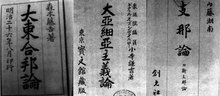 森本藤吉著
大東合邦論
明治二十六年八月印行
小寺謙吉著
大亞細亞主義論
東京 寶文館藏版
内藤湖南
支那論